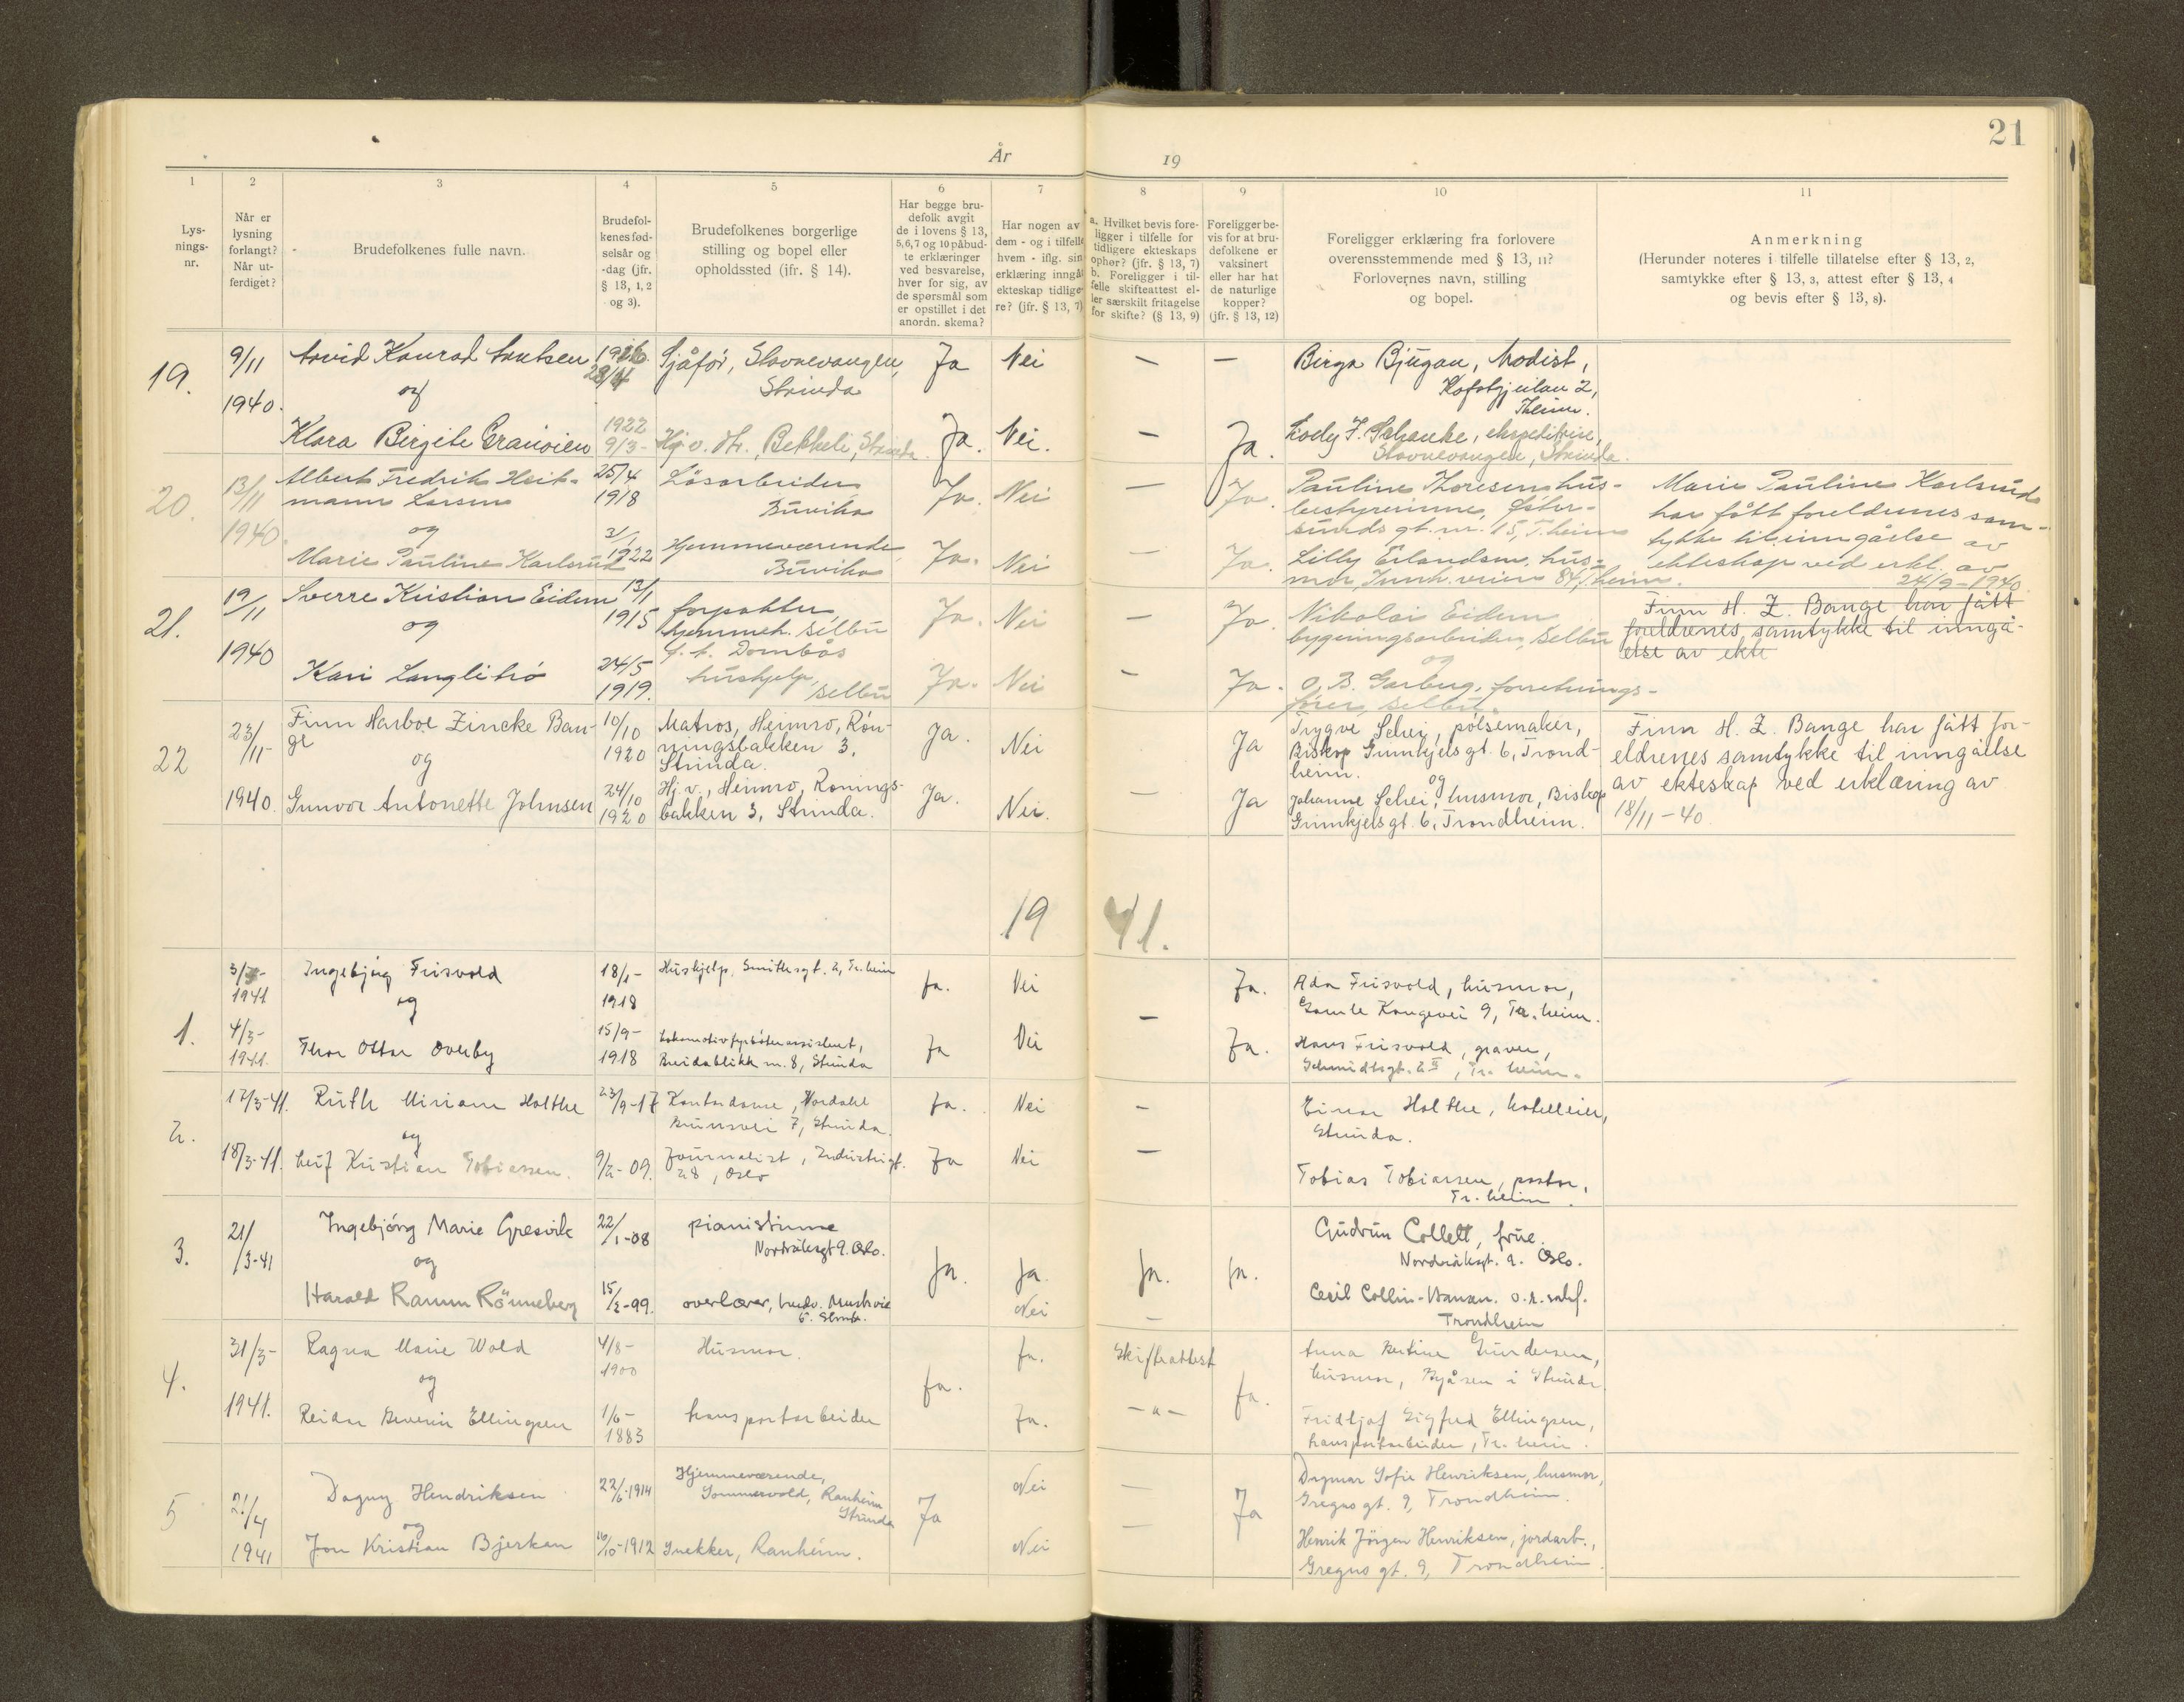 21
År
19
1
2
3
4
5
6
7
8
9
10
11
Lys-
nings-
nr.
Når er
lysning
forlangt?
Når ut-
ferdiget?
Brudefolkenes fulle navn.
Brudefol-
kenes fød-
selsår og
-dag (jfr.
§ 13, 1, 2
og 3).
Brudefolkenes borgerlige
stilling og bopel eller
opholdssted (jfr. § 14).
Har begge bru-
defolk avgit
de i lovens § 13,
5, 6, 7 og 10 påbud-
te erklæringer
ved besvarelse,
hver for sig, av
de spørsmål som
er opstillet i det
anordn. skema?
Har nogen av
dem - og i tilfelle
hvem - iflg. sin
erklæring inngåt
ekteskap tidlige-
re? (jfr. § 13, 7)
a. Hvilket bevis fore-
ligger i tilfelle for
tidligere ekteskaps
ophør? (jfr. § 13, 7)
b. Foreligger i til-
felle skifteattest el-
ler særskilt fritagelse
for skifte? (§ 13, 9)
Foreligger be-
vis for at bru-
defolkene er
vaksinert
eller har hat
de naturlige
kopper?
(jfr. § 13, 12)
Foreligger erklæring fra forlovere
overensstemmende med § 13, 11?
Forlovernes navn, stilling
og bopel.
Anmerkning
(Herunder noteres i tilfelle tillatelse efter § 13, 2,
samtykke efter § 13, 3, attest efter § 13, 4
og bevis efter § 13, 8).
19.
9/11
1940.
Arvid Konrad
og
Klara Birgite
1922
9/3-
Sjåfør,
Strinda
Hj. v. Bekkeli, Strinda
Ja
Nei
Ja.
Nei.
—
—
—
Ja.
Birga Bjugan, Modist,
Theim.
Strinda.
20.
13/11
1940.
Albert Fredrik Heit-
mann Larsen
og
Marie Pauline Karlsrud
25/4
1918
3/1
1922
Løsarbeider
Buvika
Hjemmeværende
Buvika
Ja.
Nei
Ja.
Nei
—
—
Ja.
Ja.
Pauline Thoresen hus-
bestyrerinne, Øster-
sunds gt. nr. 15, T.heim
Lilly Erlandsen, hus-
mor, Innh. veien 84, T.heim.
Marie Pauline Karlsrud
har fått foreldrenes sam-
tykke til inngåelse av
ekteskap ved erkl. av
24/9-1940
21.
19/11
1940
Sverre Kristian Eidem
og
Kari Langlitrø
12/1
1915
24/5
1919.
forpakter,
hjemmeh. Selbu
Dombås
hushjelp,
Selbu
Ja.
Nei
Ja.
Nei
—
—
Ja.
Ja.
Nikolai Eidem
bygningsarbeider, Selbu
og
O. B. Garberg, forretnings-
fører, Selbu.
Finn H. Z. Bange har fått
foreldrenes samtykke til inngå-
else av ekte
22
23/11-
1940.
Finn Harboe Zincke Ban-
ge
og
Gunvor Antonette Johnsen
10/10
1920
24/10
1920
Matros, Heimro, Røn-
ningsbakken 3,
Strinda.
Hj. v., Heimro, Rønings-
bakken 3, Strinda.
Ja.
Nei
Ja.
Nei.
—
Ja
Ja
Trygve Schei, pølsemaker,
Biskop Grimkjels gt. 6, Trond-
heim.
og
Johanne Schei, husmor, Biskop
Grimkjels gt. 6, Trondheim.
Finn H. Z. Bange har fått for-
eldrenes samtykke til inngåelse
av ekteskap ved erklæring av
18/11-40
19 41.
1.
1941
4/3-
1941.
Ingebjørg Frisvold
og
Thor Ottar Overby
18/1-
1918
15/9-
1918
Hushjelp, Smithsgt. 2, Tr.heim
Lokomotivfyrbøterassistent,
Breidablikk nr. 8, Strinda
Ja.
Nei
Ja
Nei
—
Ja.
Ja.
Ada Frisvold, husmor,
Gamle Kongevei 9, Tr.heim.
Hans Frisvold, gravør,
Schmidtsgt. 2 II, Tr. heim.
2.
17/3-41.
18/3-41.
Ruth Miriam Holthe
og
Leif Kristian Tobiassen.
23/9-17
9/2-09.
Kontordame,
7, Strinda.
Journalist, Industrigt.
28, Oslo
Ja.
Nei
Ja
Nei
—
—
Einar Holthe, hotelleier,
Strinda.
Tobias Tobiassen, pastor,
Tr. heim.
3.
21/3-41
Ingebjørg Marie Gresvik
og
Harald Ramm Rönneberg
22/1-08
15/2-99.
pianistinne
Nordråksgt 9. Oslo.
overlærer,
Ja.
Ja.
Nei
Ja.
—
Ja.
Gudrun Collett, frue.
Nordråksgt. 9. Oslo.
Cecil Collin-Hansen. o.r.sakf.
Trondheim
4.
31/3-
1941.
Ragna Marie Wold
og
Reidar Severin Ellingsen
4/8-
1900
1/6-
1883
Husmor.
transportarbeider
Ja.
Ja.
Ja.
Skifteattest
—"—
Ja.
Anna Bertine Gundersen,
husmor, Byåsen i Strinda.
Fridtjof Sigfred Ellingsen,
transportarbeider, Tr. heim.
5
21/4
1941
Dagny Hendriksen
og
Jon Kristian Bjerkan
22/6-1914
/10-1912
Hjemmeværende,
Sommervold, Ranheim
Strinda
Snekker, Ranheim.
Ja
Nei
Nei
—
—
Ja
Dagmar Sofie Henriksen, husmor,
Gregus gt. 9, Trondheim.
Henrik Jörgen Henriksen, jordarb.,
Gregus gt. 9, Trondheim.